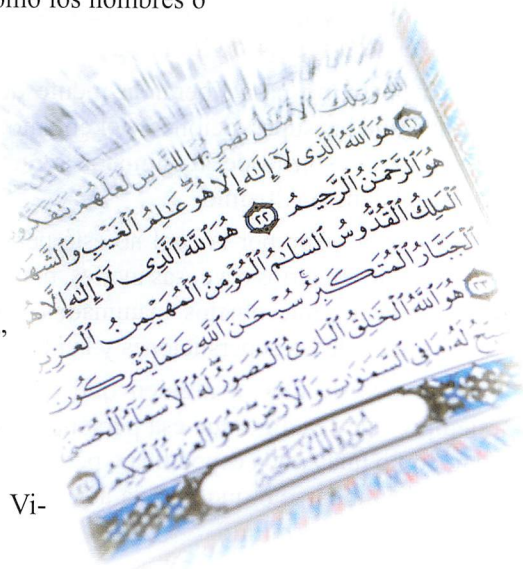 omo los nombres o
ٱللَّهِ وَتِلْكَ ٱلْأَمْثَٰلُ نَضْرِبُهَا لِلنَّاسِ لَعَلَّهُمْ يَتَفَكَّرُو
﴿٢١﴾ هُوَ ٱللَّهُ ٱلَّذِى لَآ إِلَٰهَ إِلَّا هُوَ عَٰلِمُ ٱلْغَيْبِ وَٱلشَّهَٰ
هُوَ ٱلرَّحْمَٰنُ ٱلرَّحِيمُ ﴿٢٢﴾ هُوَ ٱللَّهُ ٱلَّذِى لَآ إِلَٰهَ إِلَّا هُ
ٱلْمَلِكُ ٱلْقُدُّوسُ ٱلسَّلَٰمُ ٱلْمُؤْمِنُ ٱلْمُهَيْمِنُ ٱلْعَزِيزُ
ٱلْجَبَّارُ ٱلْمُتَكَبِّرُ سُبْحَٰنَ ٱللَّهِ عَمَّا يُشْرِكُونَ
﴿٢٣﴾ هُوَ ٱللَّهُ ٱلْخَٰلِقُ ٱلْبَارِئُ ٱلْمُصَوِّرُ لَهُ ٱلْأَسْمَآءُ ٱلْحُسْنَىٰ
سَبِّحُ لَهُۥ مَا فِى ٱلسَّمَٰوَٰتِ وَٱلْأَرْضِ وَهُوَ ٱلْعَزِيزُ ٱلْحَكِيمُ ﴿٢٤﴾
سُورَةُ ٱلْمُمْتَحِنَةِ
Vi-